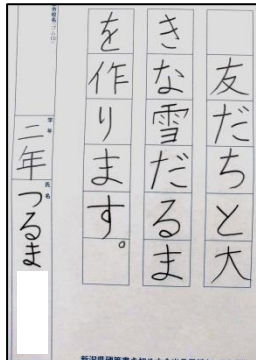 友だちと大
きな雪だるま
を作ります。
学年 三年 氏名 つるま